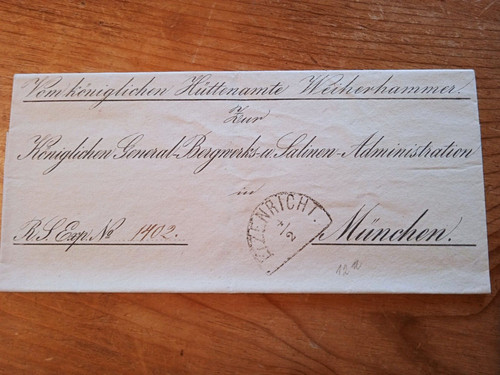 Vom königlichen Hüttenamte Weiherhammer.
Zur
Königlichen General-Bergwerks- u. Salinen-Administration
in
München.
R. S. Exp. No 1402.
EIZENRICHT.
9/2
12 a